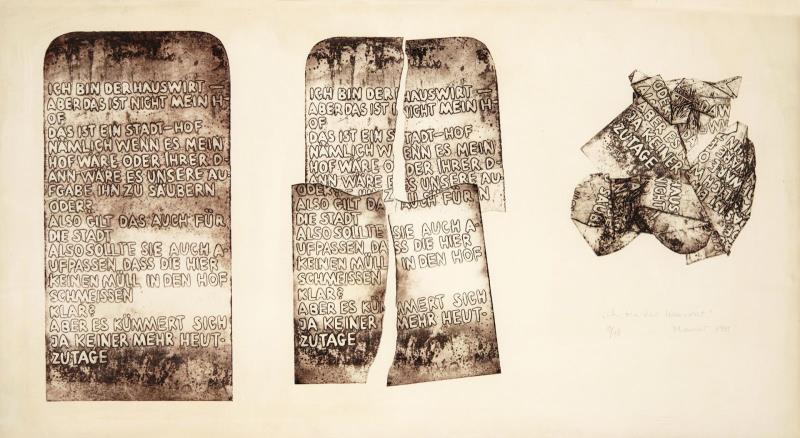 ICH BIN DER HAUSWIRT —
ABER DAS IST NICHT MEIN H-
OF
DAS IST EIN STADT-HOF
NÄMLICH WENN ES MEIN
HOF WÄRE ODER IHRER D-
ANN WÄRE ES UNSERE AU-
FGABE IHN ZU SÄUBERN
ODER?
ALSO GILT DAS AUCH FÜR
DIE STADT
ALSO SOLLTE SIE AUCH A-
UFPASSEN DASS DIE HIER
KEINEN MÜLL IN DEN HOF
SCHMEISSEN
KLAR?
ABER ES KÜMMERT SICH
JA KEINER MEHR HEUT-
ZUTAGE
ICH BIN DER HAUSWIRT —
ABER DAS IST NICHT MEIN H-
OF
DAS IST EIN STADT-HOF
NÄMLICH WENN ES MEIN
HOF WÄRE ODER IHRER D-
ANN WÄRE ES UNSERE AU-
ODER
ALSO GILT DAS AUCH FÜR
DIE STADT
ALSO SOLLTE SIE AUCH A-
UFPASSEN DASS DIE HIER
KEINEN MÜLL IN DEN HOF
SCHMEISSEN
KLAR?
ABER ES KÜMMERT SICH
JA KEINER MEHR HEUT-
ZUTAGE
ODER
ABER ES
JA KEINER
ZUTAGE
"ich bin der Hauswirt"